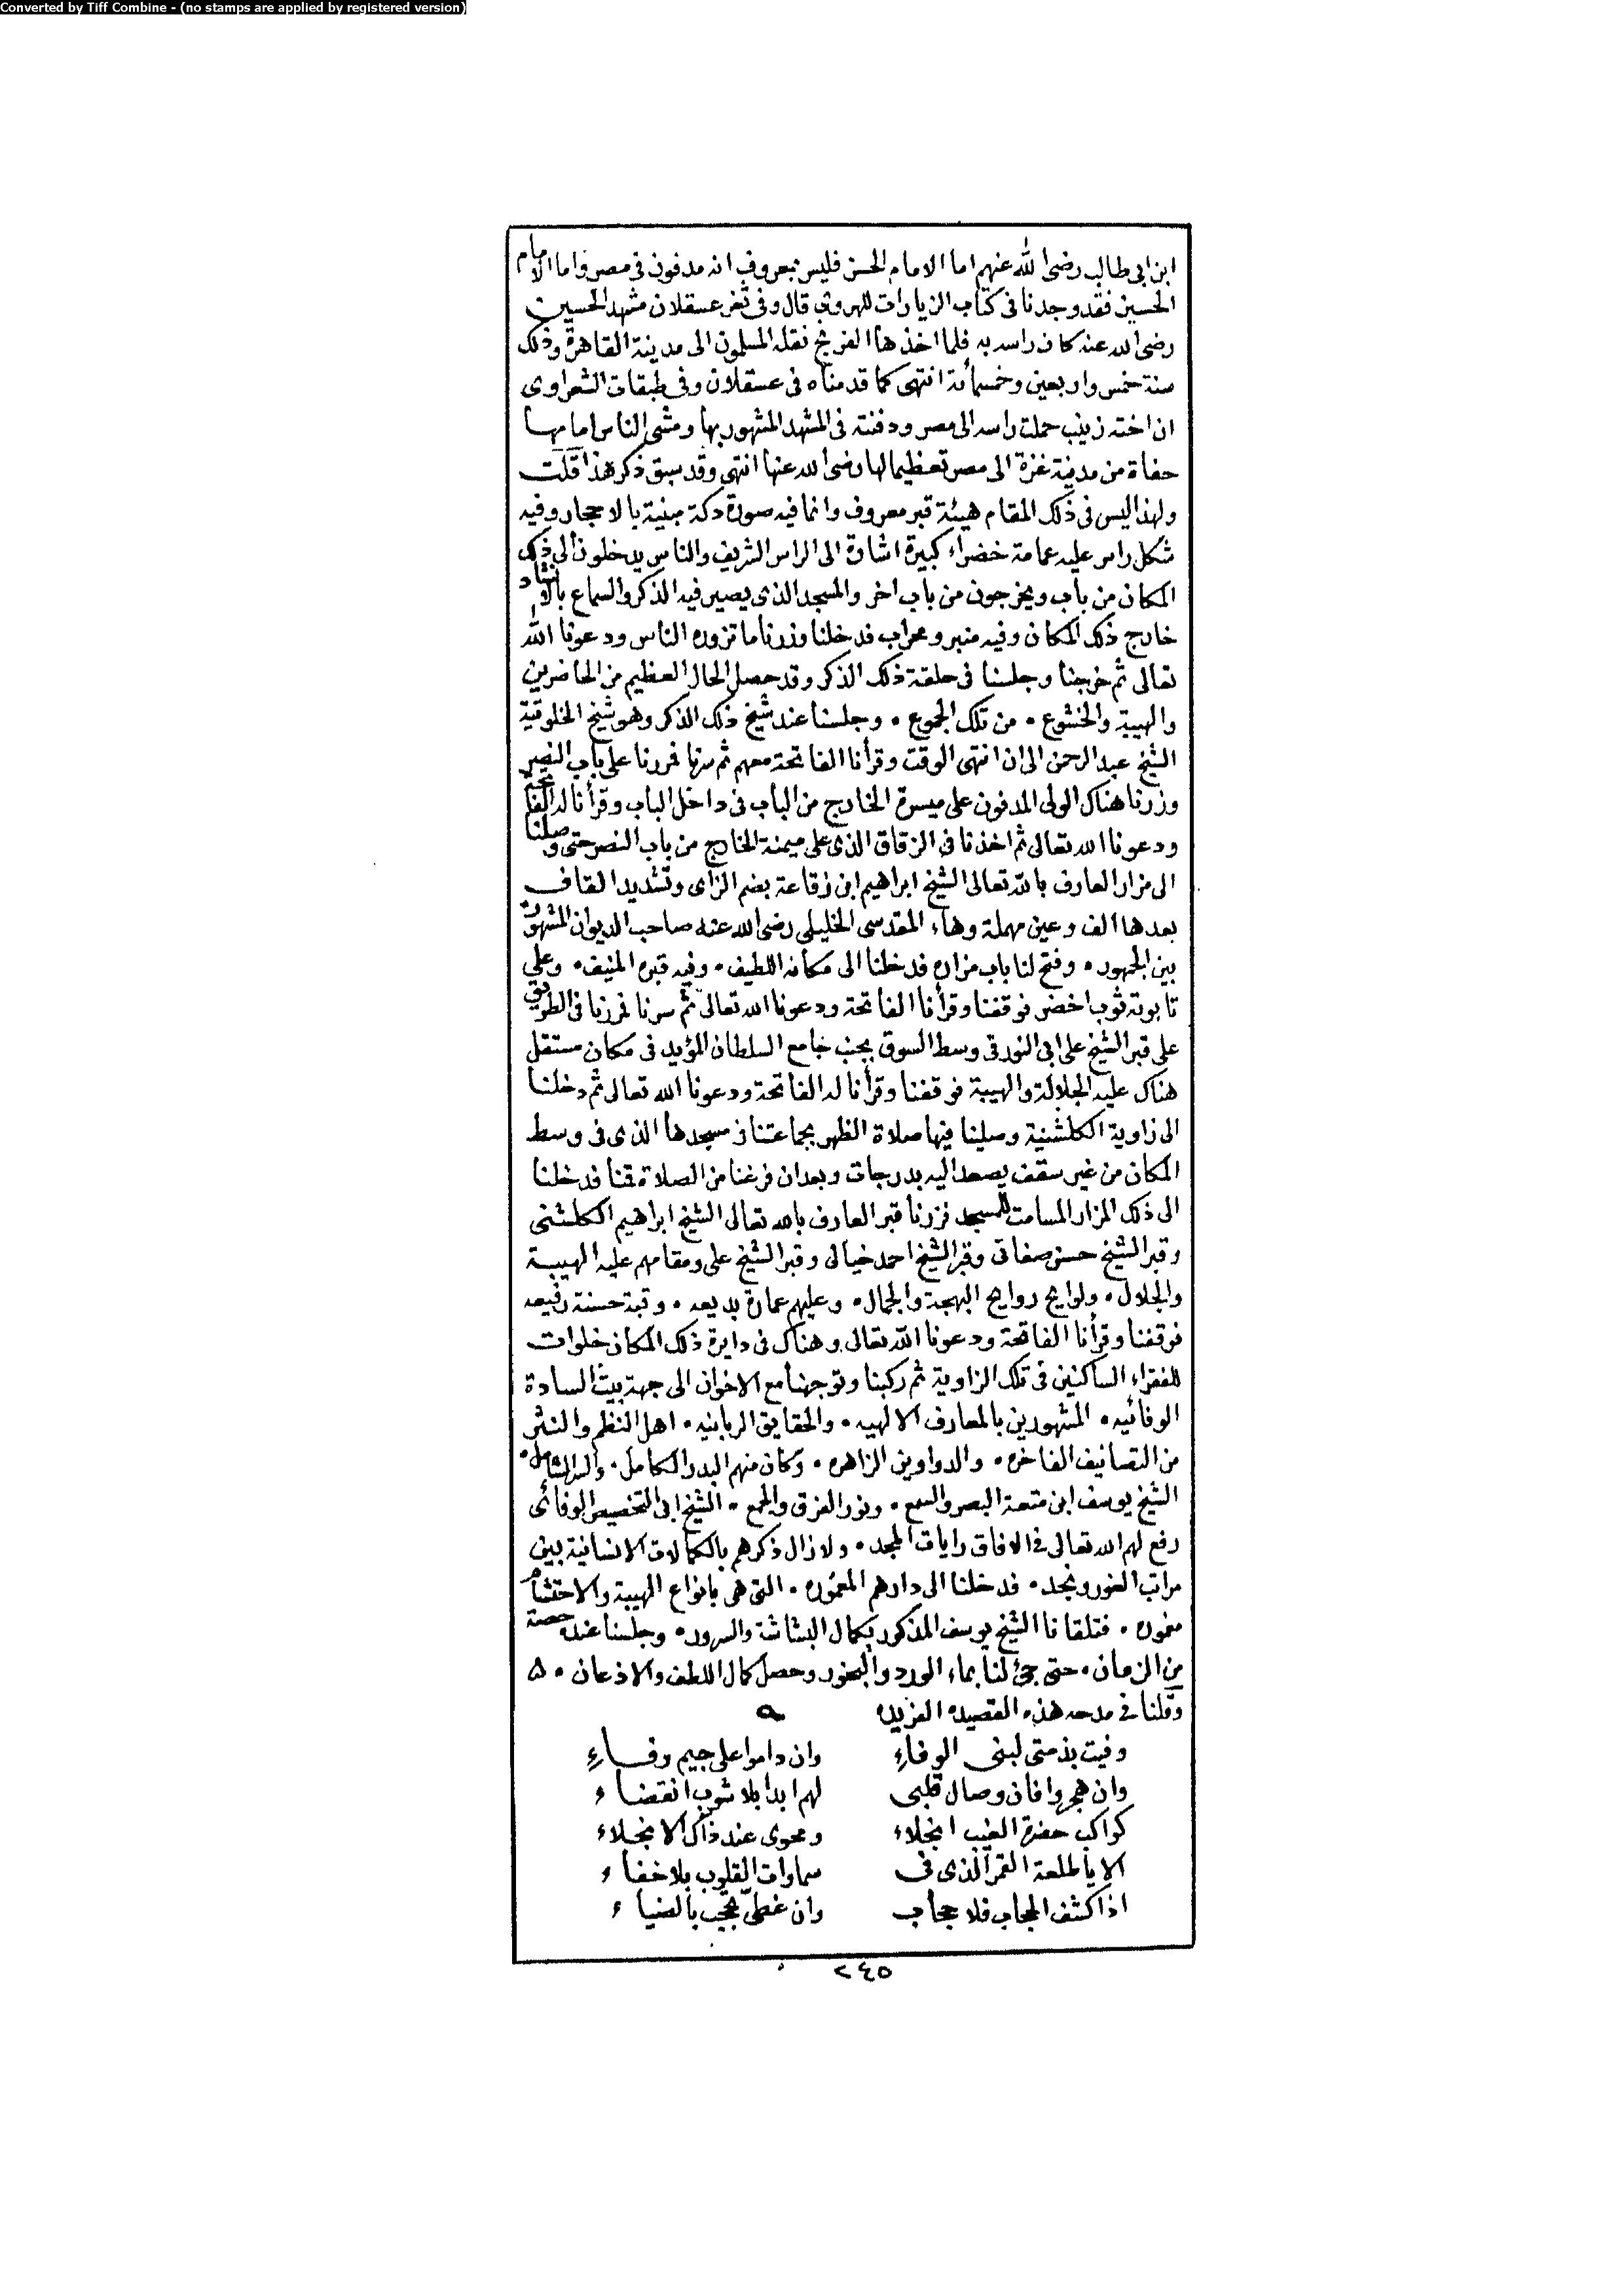 Converted by Tiff Combine - (no stamps are applied by registered version)
ابن ابى طالب رضى الله عنهم اما الامام الحسن فليس بمعروف انه مدفون فى مصر واما الامام
الحسين فقد وجدنا فى كتاب الزيارات للهروى قال وفى ثغر عسقلان مشهد الحسين
رضى الله عنه كان راسه به فلما اخذها الفرنج نقله المسلمون الى مدينة القاهرة وذلك
سنة خمس واربعين وخمسمائة انتهى كما قدمناه فى عسقلان وفى طبقات الشعراوى
ان اخته زينب حملت راسه الى مصر ودفنته فى المشهد المشهور بها ومشى الناس امامها
حفاة من مدينة غزة الى مصر تعظيما لها رضى الله عنها انتهى وقد سبق ذكر هذا قلت
ولهذا ليس فى ذلك المقام هيئة قبر معروف وانما فيه صورة دكة مبنية بالاحجار وفيه
شكل راس عليه عمامة خضراء كبيرة اشارة الى الراس الشريف والناس يدخلون الى ذلك
المكان من باب ويخرجون من باب اخر والمسجد الذى يصير فيه الذكر والسماع بالانشاد
خارج ذلك المكان وفيه منبر ومحراب فدخلنا وزرنا ما تزوره الناس ودعونا الله
تعالى ثم خرجنا وجلسنا فى حلقة ذلك الذكر وقد حصل الحال العظيم من الحاضرين
والهيبة والخشوع • من تلك الجموع • وجلسنا عند شيخ ذلك الذكر وهو شيخ الخلوتية
الشيخ عبد الرحمن الى ان انتهى الوقت وقرأنا الفاتحة معهم ثم سرنا فمررنا على باب النصر
وزرنا هناك الولى المدفون على ميسرة الخارج من الباب فى داخل الباب وقرأنا له الفاتحة
ودعونا الله تعالى ثم اخذنا فى الزقاق الذى على ميمنة الخارج من باب النصر حتى وصلنا
الى مزار العارف بالله تعالى الشيخ ابراهيم ابن زقاعة بضم الزاى وتشديد القاف
بعدها الف وعين مهملة وهاء المقدسى الخليلى رضى الله عنه صاحب الديوان المشهور
بين الجمهور • وفتح لنا باب مزاره فدخلنا الى مكانه اللطيف • وفيه قبره المنيف • وعلى
تابوته ثوب اخضر فوقفنا وقرأنا الفاتحة ودعونا الله تعالى ثم سرنا فمررنا فى الطريق
على قبر الشيخ على ابى النور فى وسط السوق بجنب جامع السلطان المؤيد فى مكان مستقل
هناك عليه الجلالة والهيبة فوقفنا وقرأنا له الفاتحة ودعونا الله تعالى ثم دخلنا
الى زاوية الكلشنية وصلينا فيها صلاة الظهر بجماعتنا فى مسجدها الذى فى وسط
المكان من غير سقف يصعد اليه بدرجات وبعد ان فرغنا من الصلاة قمنا فدخلنا
الى ذلك المزار المسامت للمسجد فزرنا قبر العارف بالله تعالى الشيخ ابراهيم الكلشنى
وقبر الشيخ حسن صفاتى وقبر الشيخ احمد خيالى وقبر الشيخ على ومقامهم عليه الهيبة
والجلال • ولوايح روايح البهجة والجمال • وعليهم عمارة بديعه • وقبة حسنة رفيعه
فوقفنا وقرأنا الفاتحة ودعونا الله تعالى وهناك فى دايرة ذلك المكان خلوات
للفقراء الساكنين فى تلك الزاوية ثم ركبنا وتوجهنا مع الاخوان الى جهة بيت السادة
الوفائيه • المشهورين بالمعارف الالهيه • والحقايق الربانيه • اهل النظم والنثر
من التصانيف الفاخره • والدواوين الزاهره • وكان منهم البدر الكامل • والسر الشامل •
الشيخ يوسف ابن متعة البصر والسمع • ونور الفرق والجمع • الشيخ ابى التخصيص الوفائى
رفع لهم الله تعالى فى الافاق رايات المجد • ولا زال ذكرهم بالكمالات الانسانية بين
مراتب الغور ونجد • فدخلنا الى دارهم المعموره • التى هى بانواع الهيبة والاحتشام
مغموره • فتلقانا الشيخ يوسف المذكور بكمال البشاشة والسرور • وجلسنا عنده حصة
من الزمان • حتى جئ لنا بماء الورد والبخور وحصل كمال اللطف والاذعان • ٥
وقلنا فى مدحه هذه القصيدة الفريده ٩
وفيت بذمتى لبنى الوفاء وان داموا على جيم وفاء
وان هجروا فان وصال قلبى لهم ابدا بلا شوب انقضاء
كواكب حضرة الغيب انجلاء ومحوى عند ذاك الانجلاء
الا يا طلعة القمر الذى فى سماوات القلوب بلا خفاء
اذا كشف الحجاب فلا حجاب وان غطى تحجب بالضياء
٢٤٥